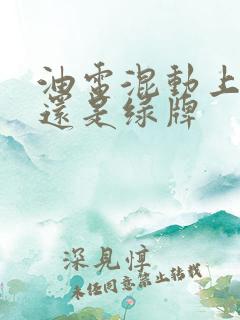 油電混動上
還是綠牌
深見惇
未經同意禁止轉載